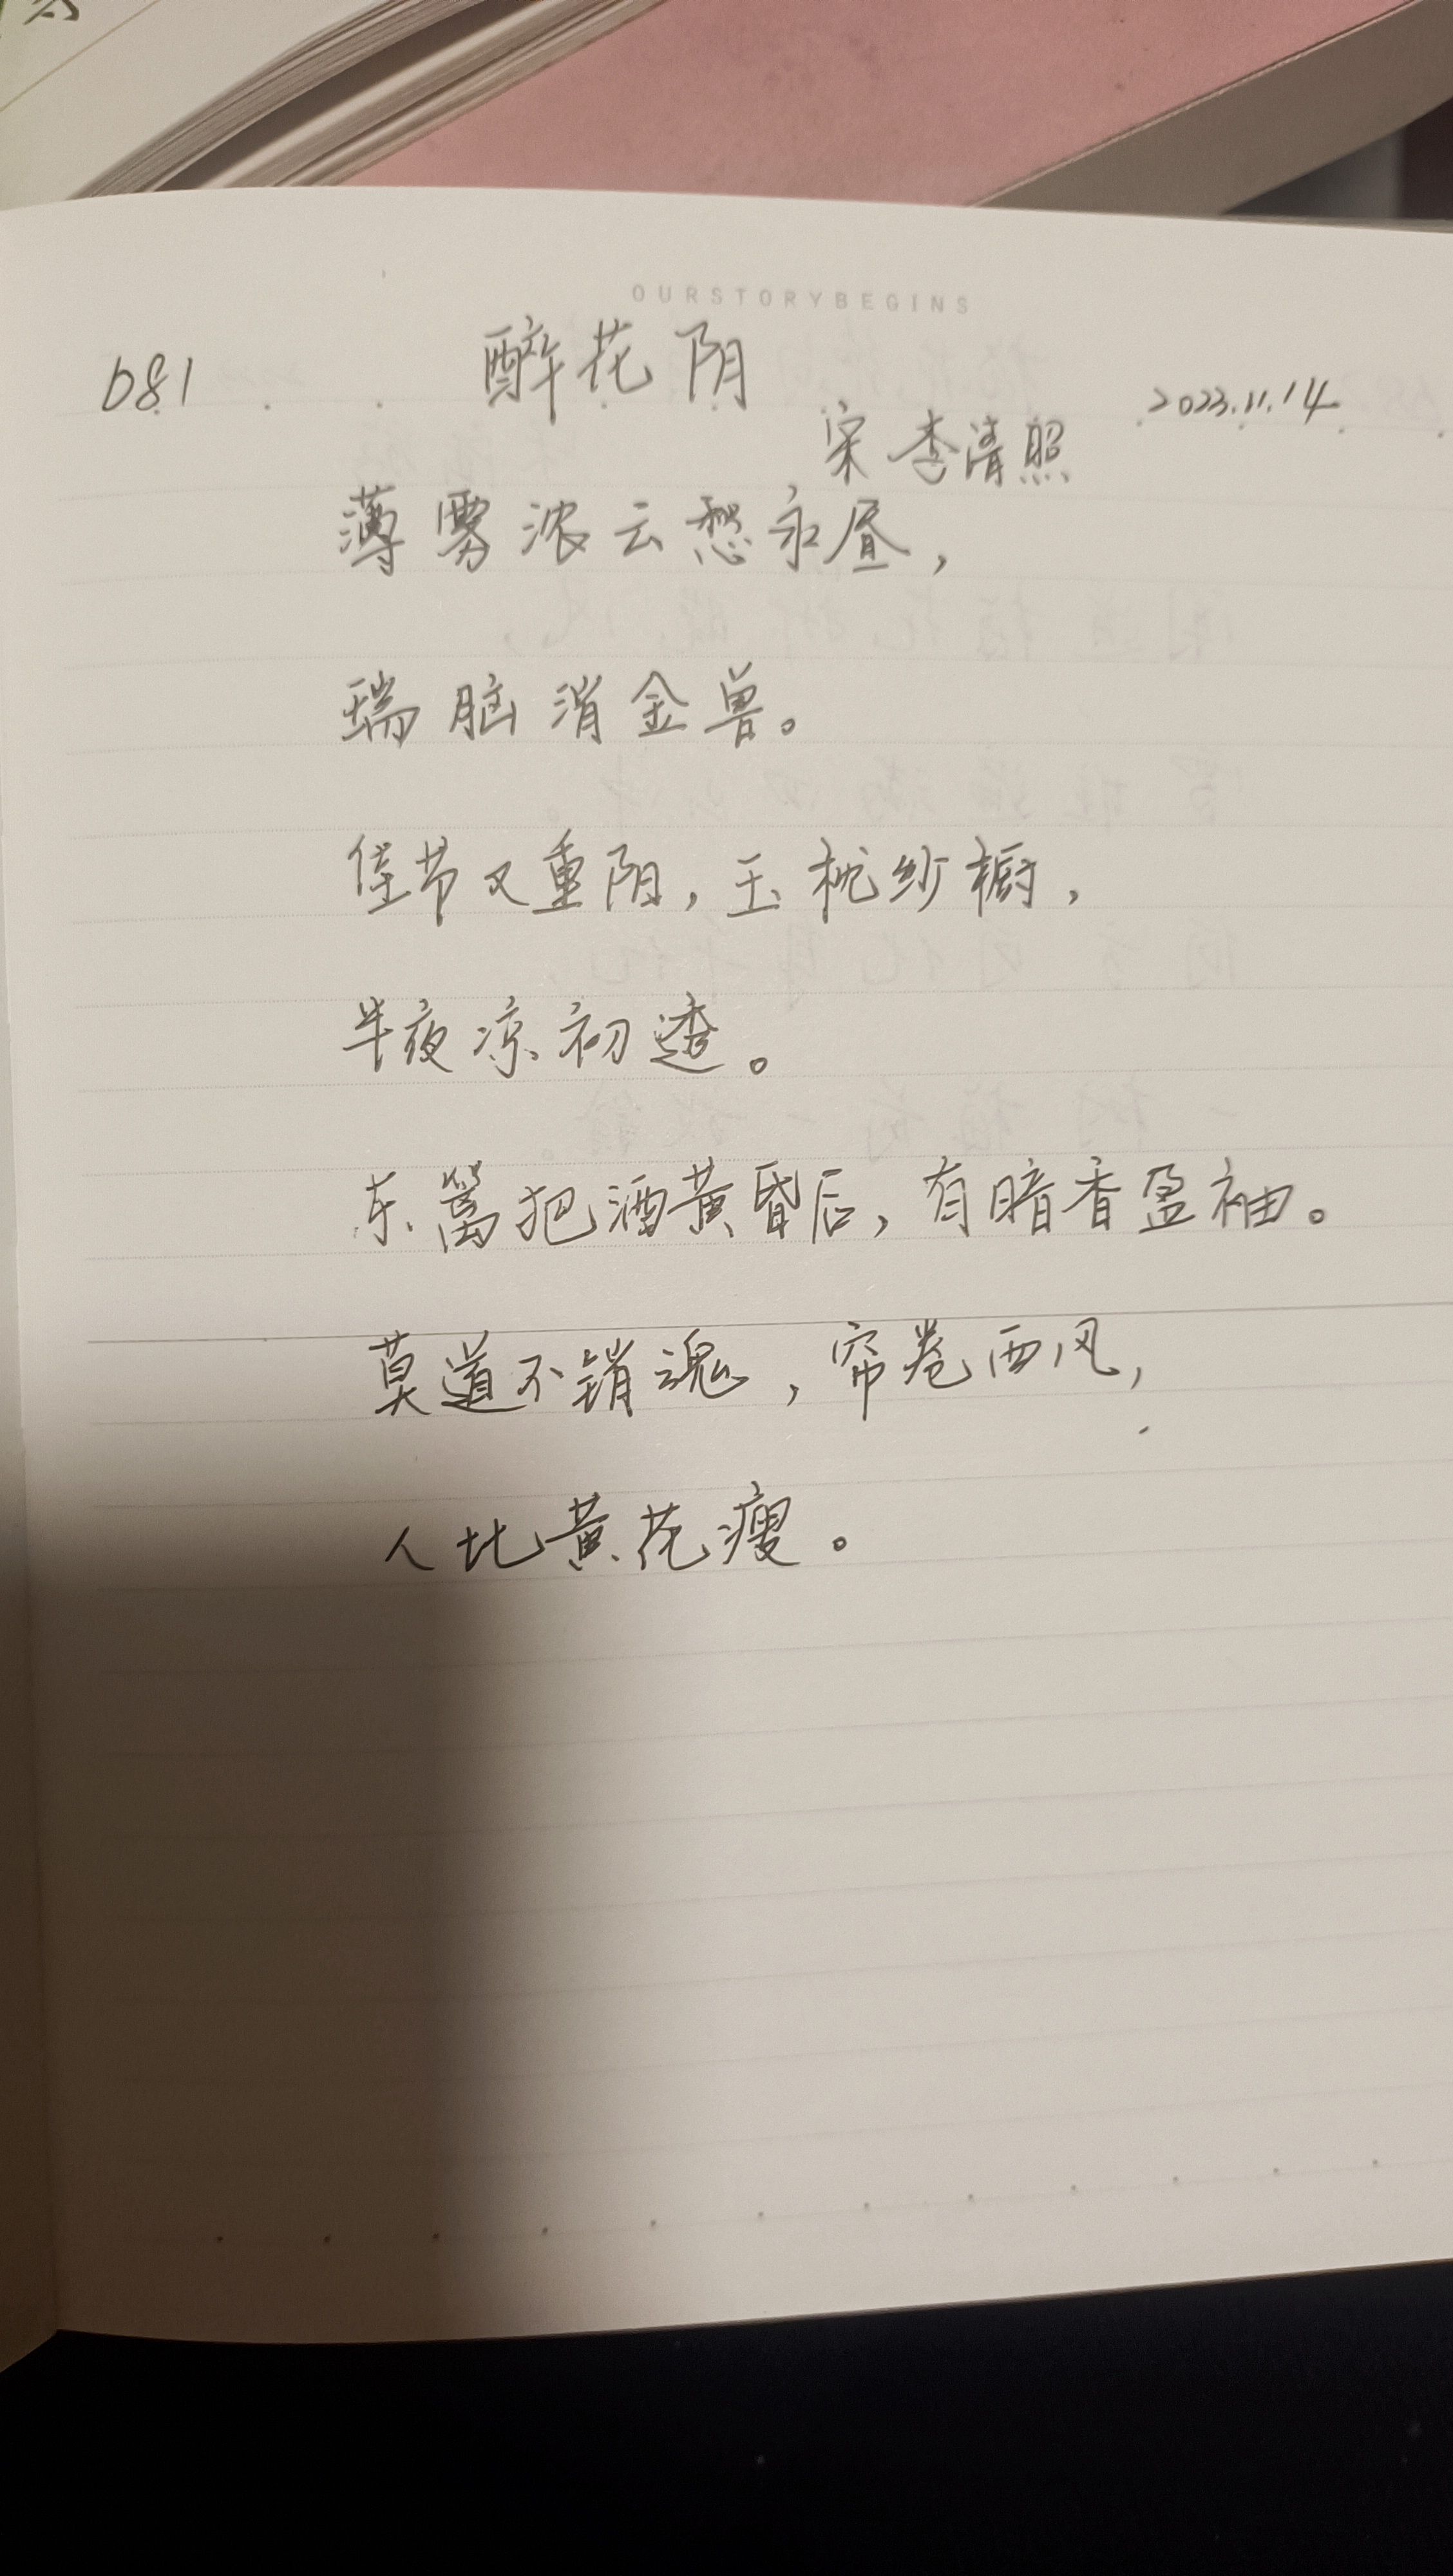 OURSTORYBEGINS
081 醉花阴 2023.11.14
宋 李清照
薄雾浓云愁永昼，
瑞脑消金兽。
佳节又重阳，玉枕纱橱，
半夜凉初透。
东篱把酒黄昏后，有暗香盈袖。
莫道不销魂，帘卷西风，
人比黄花瘦。